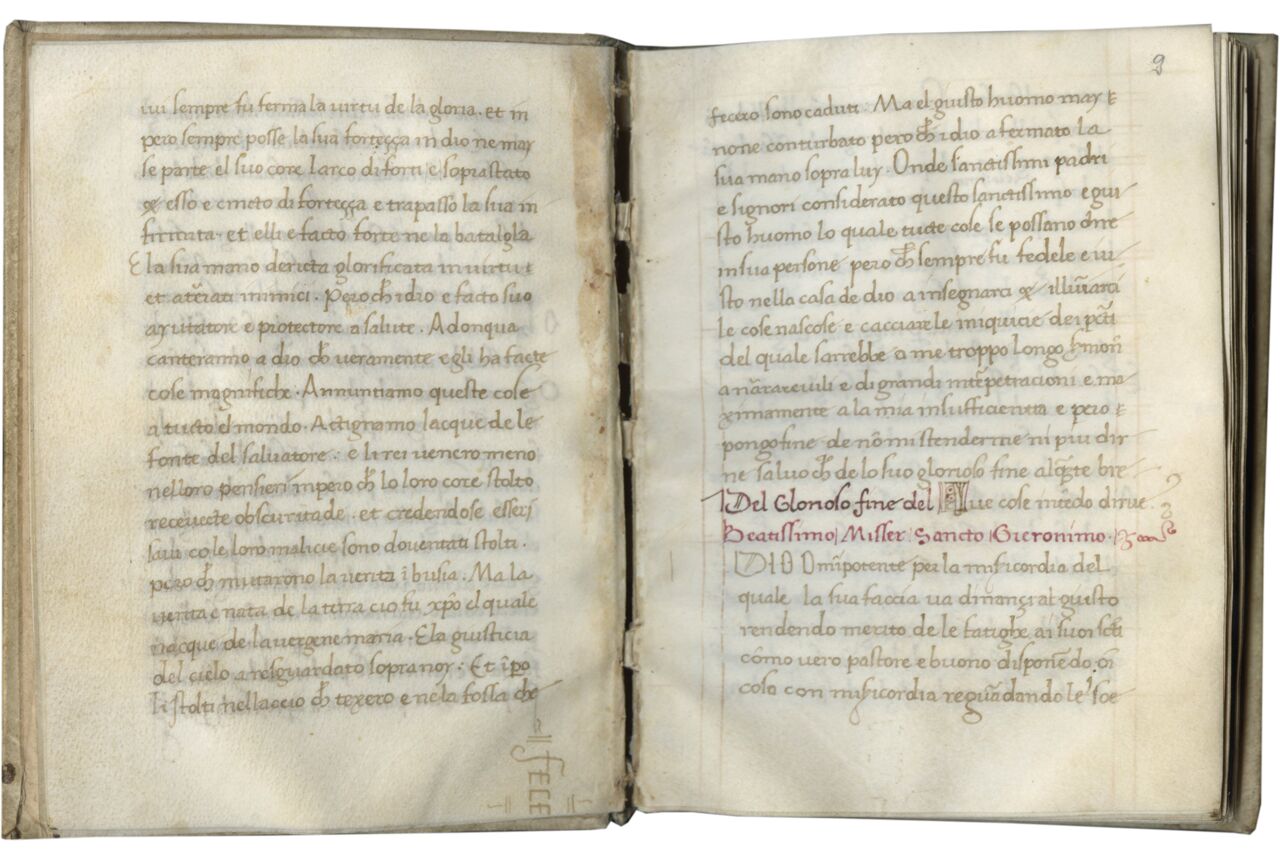 lui sempre fu ferma la virtu de la gloria. et in
pero sempre posse la sua forteçça in dio ne may
se parte el suo core larco di forti e soprastato
esso e cincto di forteçça e trapasso la sua in
firmita. et elli e facto forte ne la batalgla
E la sua mano dericta glorificata in virtu
et aterati inimici. Pero ch idio e facto suo
ayutatore e protectore a salute. Adonqua
canteranno a dio ch veramente egli ha facte
cose magnifiche. Annuntiamo queste cose
a tucto el mondo. Actignamo lacque de le
fonte del salvatore. e li rei venero meno
nelloro pensieri inpero ch lo loro core stolto
recevecte obscuritade. et credendose esseri
savi co le loro malicie sono doventati stolti.
pero ch mutarono la verita ī busia. Ma la
verita e nata de la terra cio fu xp̄o el quale
nacque de la vergene maria. E la guisticia
del cielo a resguardato sopra noy. Et īp̄o
li stolti nellaccio ch texero e ne la fossa che
FECE
9
fecero sono caduti. Ma el guisto huomo may
none conturbato pero ch idio a fermato la
sua mano sopra luy. Onde sanctissimi padri
e signori considerato questo sanctissimo e gui
sto huomo lo quale tucte cose se possano dire
in sua persone pero ch sempre fu fedele e iu
sto nella casa de dio a insegnarci illūīarci
le cose nascose e cacciare le iniquicie dei pcāti
del quale sarrebbe a me troppo longo s̄mon̄
a nārare vili e di grandi intēpetracioni e ma
ximamente a la mia insufficientia e pero
pongo fine de nō mi stenderme ni piu dir
ne salvo ch de lo suo glorioso fine alq̄te bre
Del Glorioso fine del ve cose intēdo dirve.
Beatissimo Misser Sancto Gieronimo.
DIO Omīpotente per la misicordia del
quale la sua faccia va dinançi al guisto
rendendo merito de le fatighe ai suoi scti
cōmo vero pastore e buono disponēdo oi
cosa con misicordia reguādando le soe